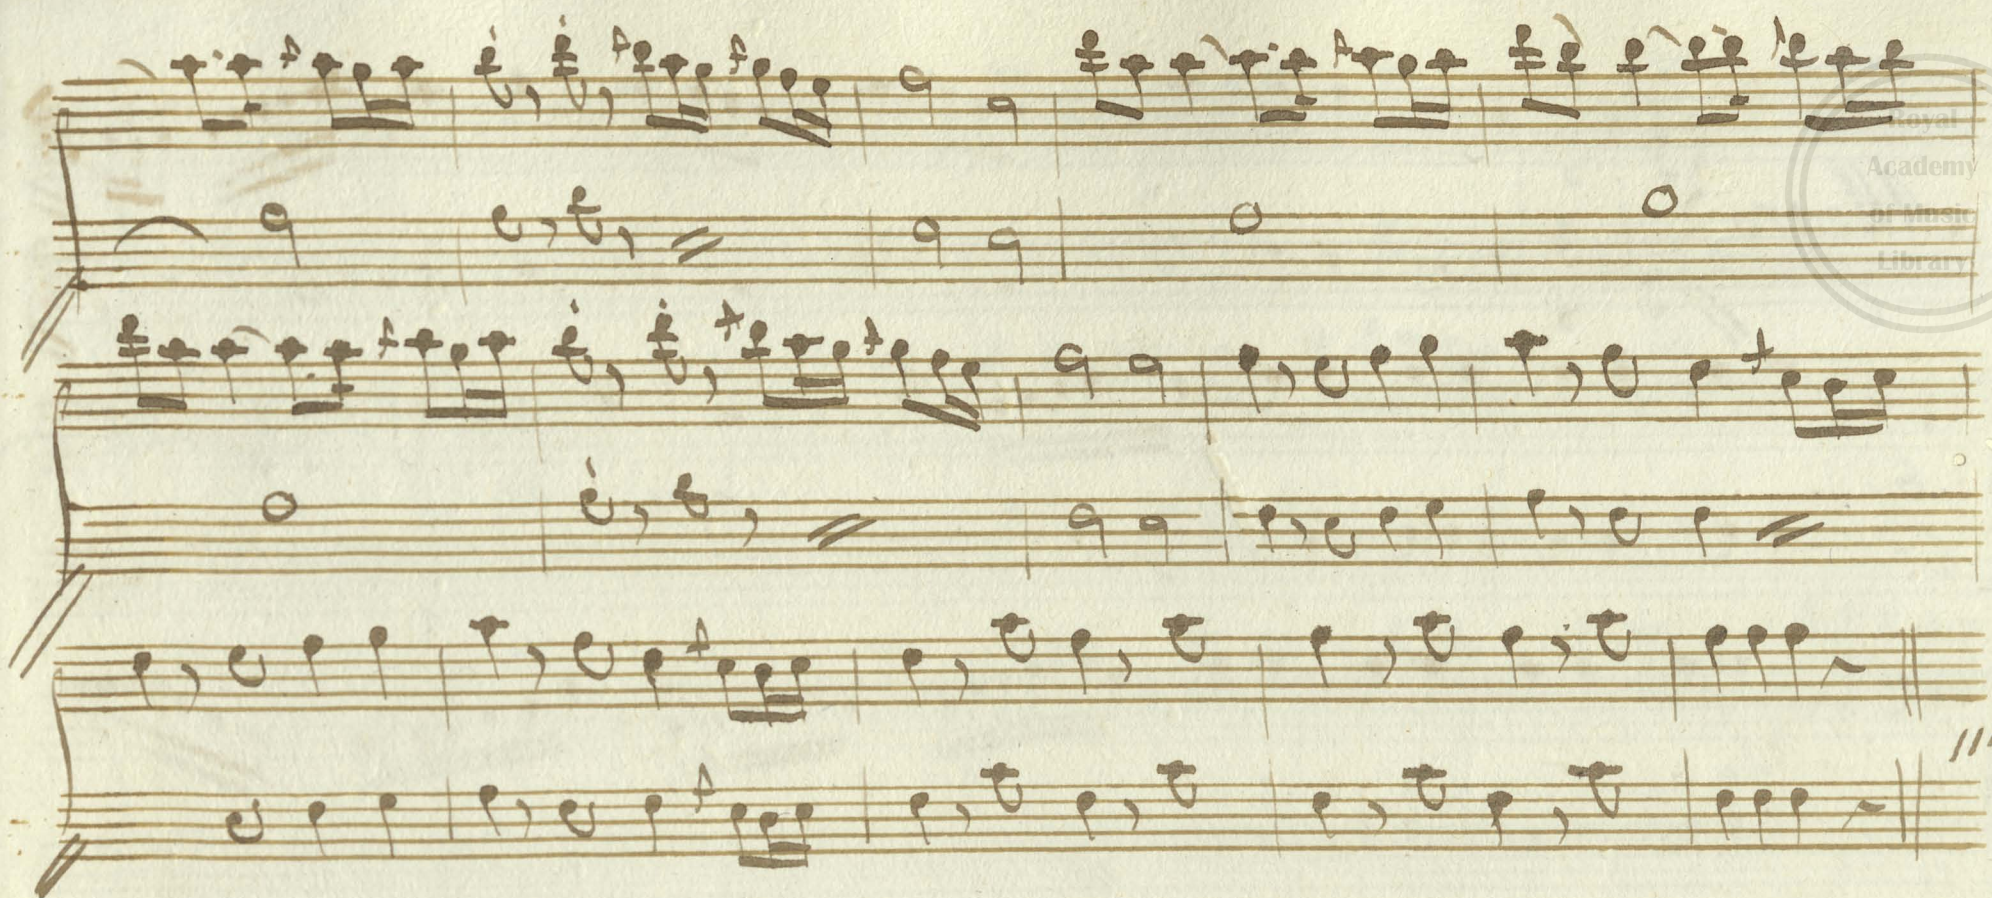 Royal
Academy
of Music
Library